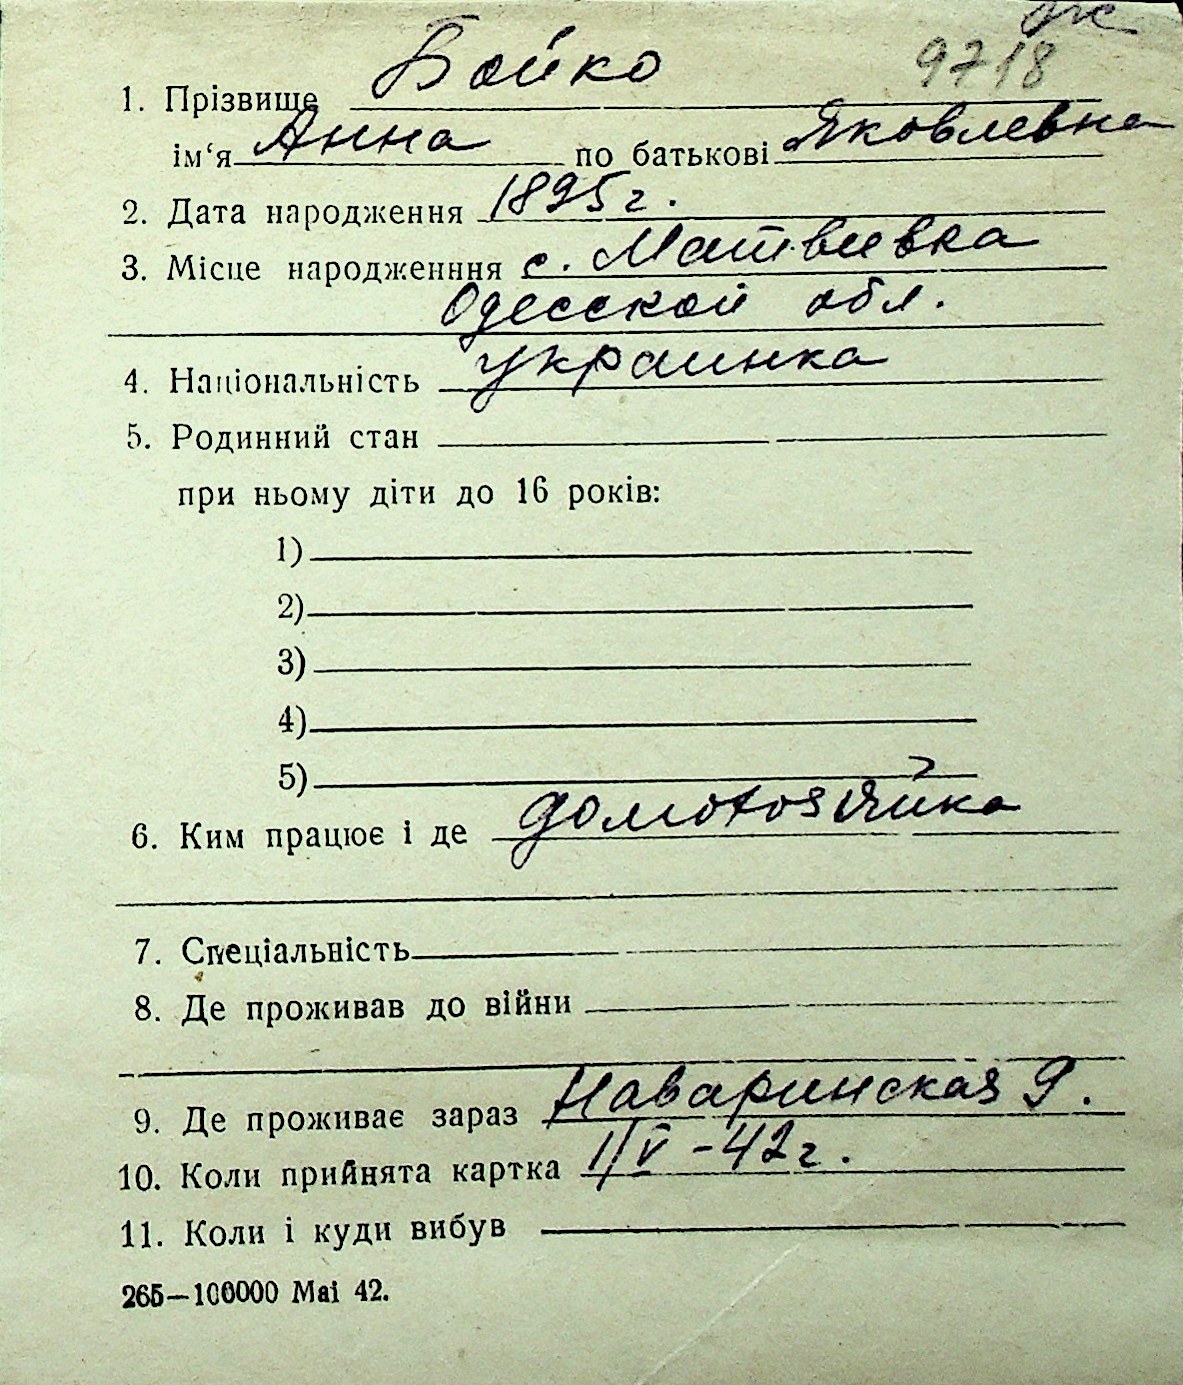 9718
1. Прізвище Бойко
ім‘я Анна по батькові Яковлевна
2. Дата народження 1895 г.
3. Місце народженння с. Матвиевка
Одесской обл.
4. Національність украинка
5. Родинний стан
при ньому діти до 16 років:
1)
2)
3)
4)
5)
6. Ким працює і де домохозяйка
7. Спеціальність
8. Де проживав до війни
9. Де проживає зараз Наваринская 9.
10. Коли прийнята картка 1/V-42 г.
11. Коли і куди вибув
265—100000 Mai 42.